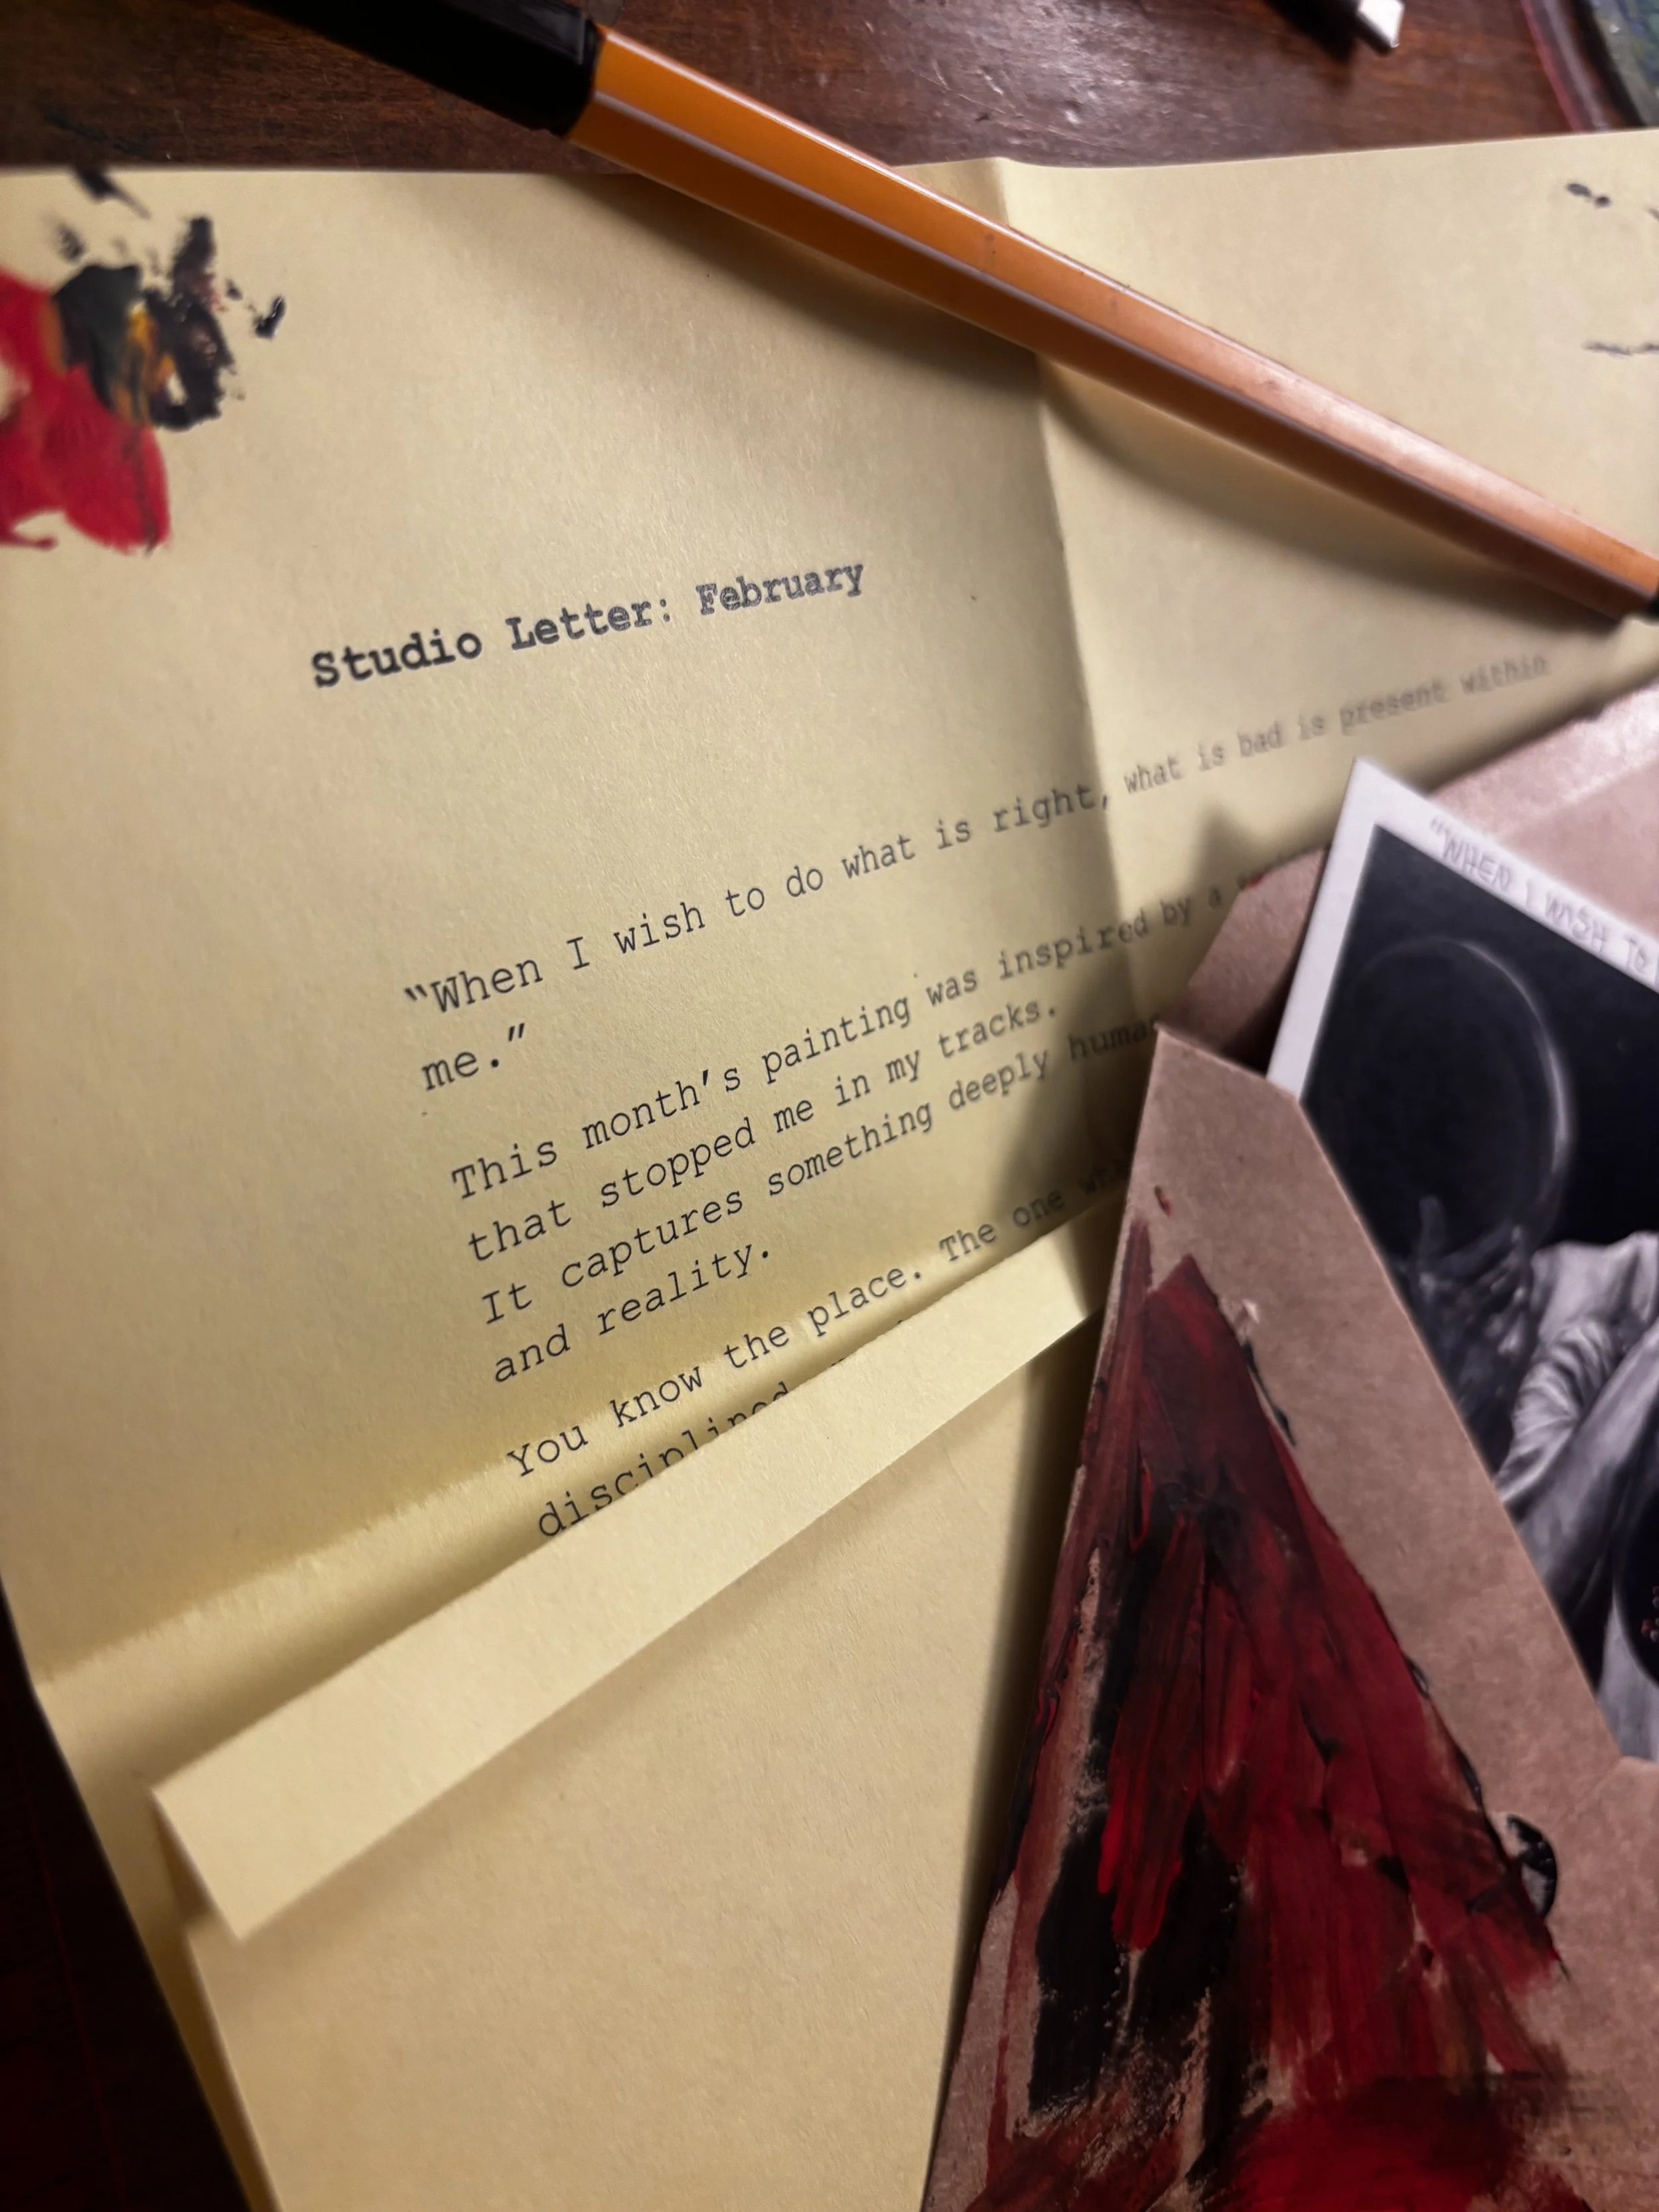 Studio Letter: February
“When I wish to do what is right, what is bad is present within
me.”
This month’s painting was inspired by a
that stopped me in my tracks.
It captures something deeply human
and reality.
You know the place. The one
disciplined
"WHEN I WISH TO